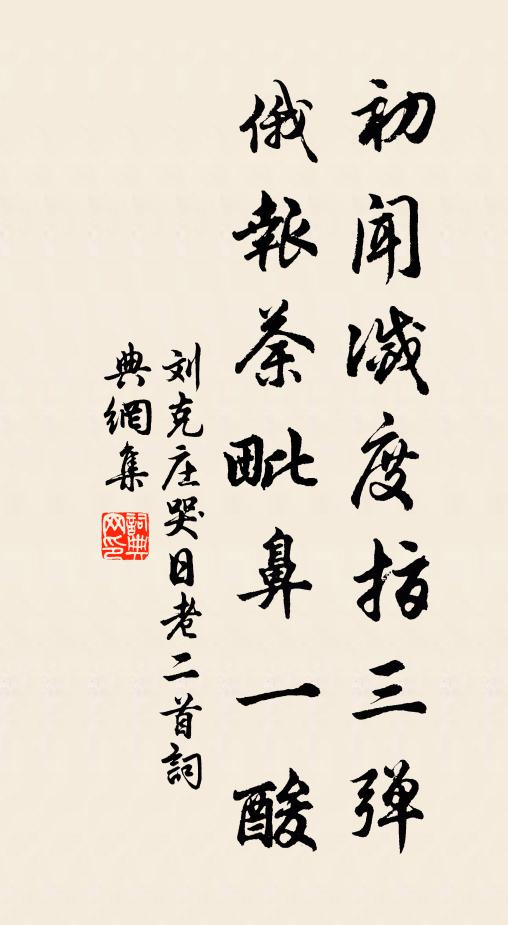 初闻滅度指三弹
俄報茶毗鼻一酸
刘克庄哭日老二首詞
典網集
詞典
网印